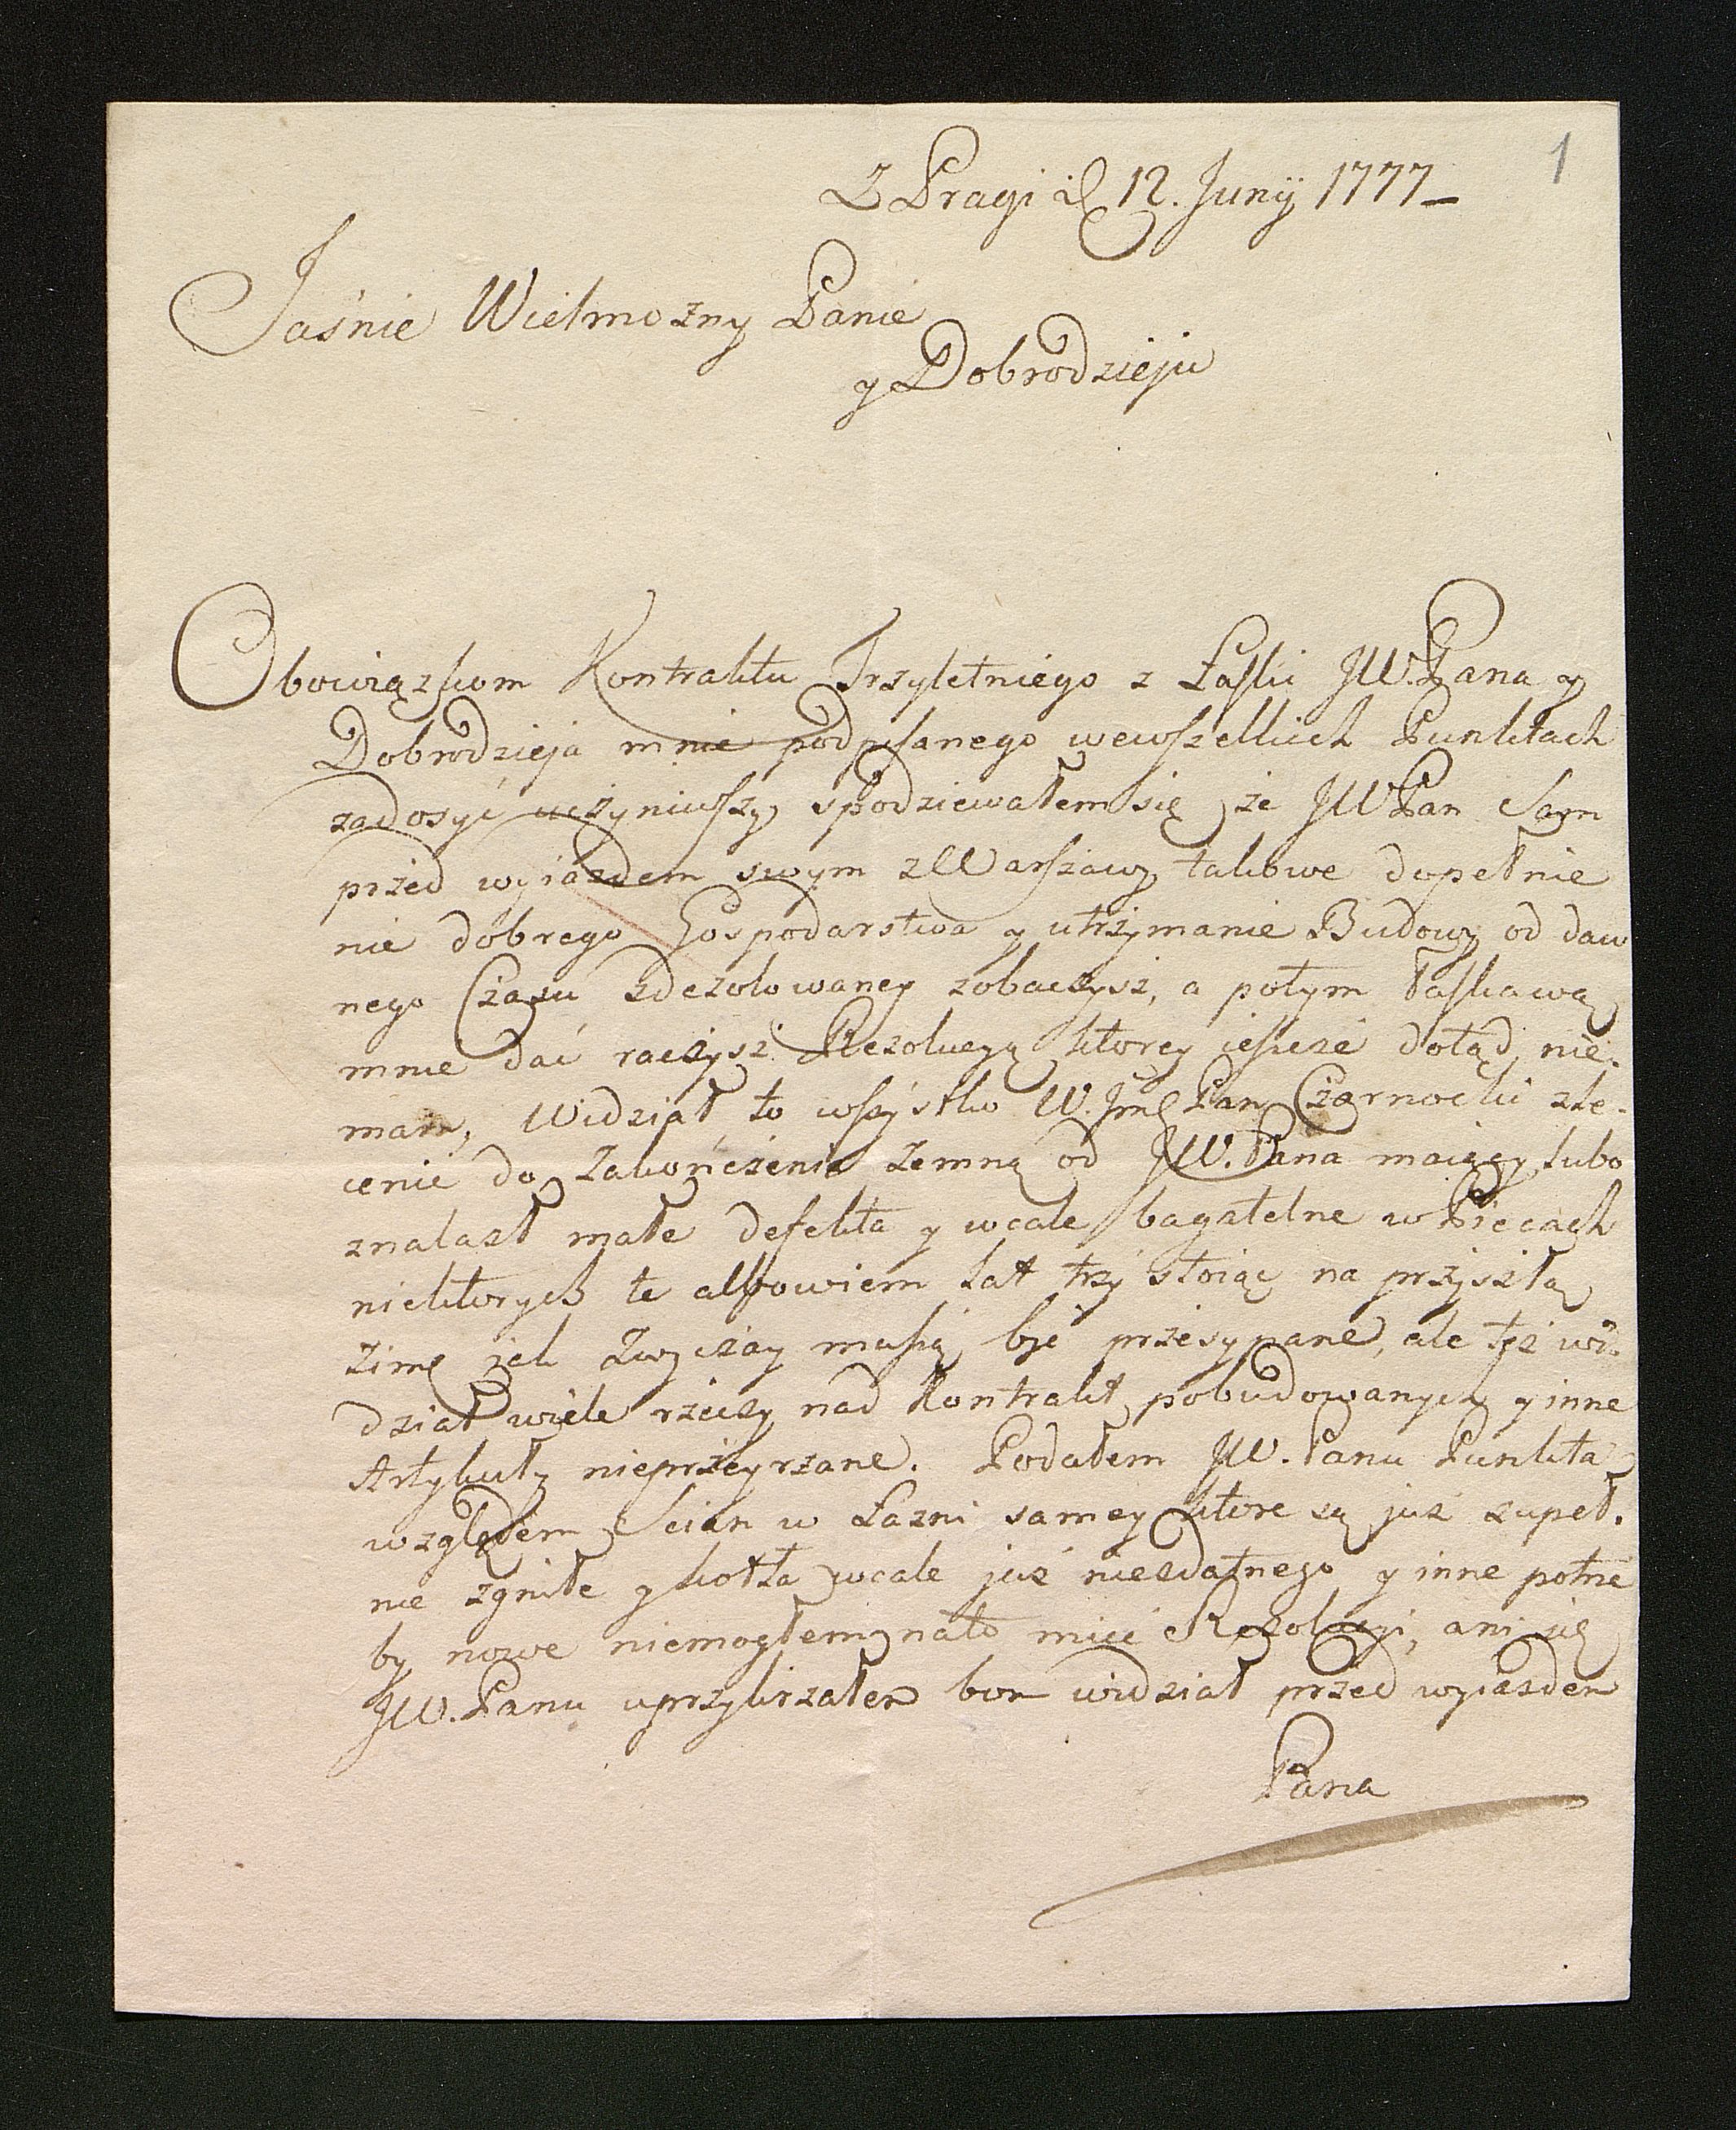 1
Z Pragi d 12. Junij 1777
Jaśnie Wielmozny Panie
y Dobrodzieju
Obowiązkom Kontraktu Trzyletniego z Łaſki JW. Pana y
Dobrodzieja mnie podpiſanego wewſzelkich Punktach
zadosyć uczyniwſzy, spodziewałem się że JWPan Sam
przed wyiazdem swym z Warſzawy takowe dopełnie
nie dobrego Gospodarstwa y utrzymanie Budowy od daw
nego Czasu zdezolowaney zobaczysz, a potym łaſkawą
mnie dać raczysz Rezolucyą ktorey ieſzcze dotąd nie-
mam, Widział to wſzystko W. Jmć Pan Czarnocki zle-
cenie do zakończenia zemną od JW. Pana maiący, lubo
znalazł małe defekta y wcale bagatelne w Piecach
niektorych te albowiem lat trzy stoiąc na przyszłą
zimę jak zwyczay muſzą być przesypane, ale też wi-
dział wiele rzeczy nad Kontrakt pobudowanych y inne
Artykuły nieprzeyrzane. Podałem JW. Panu Punkta
względem Scian w Łazni samey ktore są już zupeł-
nie zgniłe y kotła wcale już niezdatnego y inne potrze
by nowe niemogłem nato mieć Rezolucyi, ani się
JW. Panu uprzykrzałem bom widział przed wyiazdem
Pana